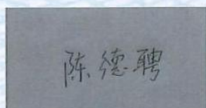 陈德聘